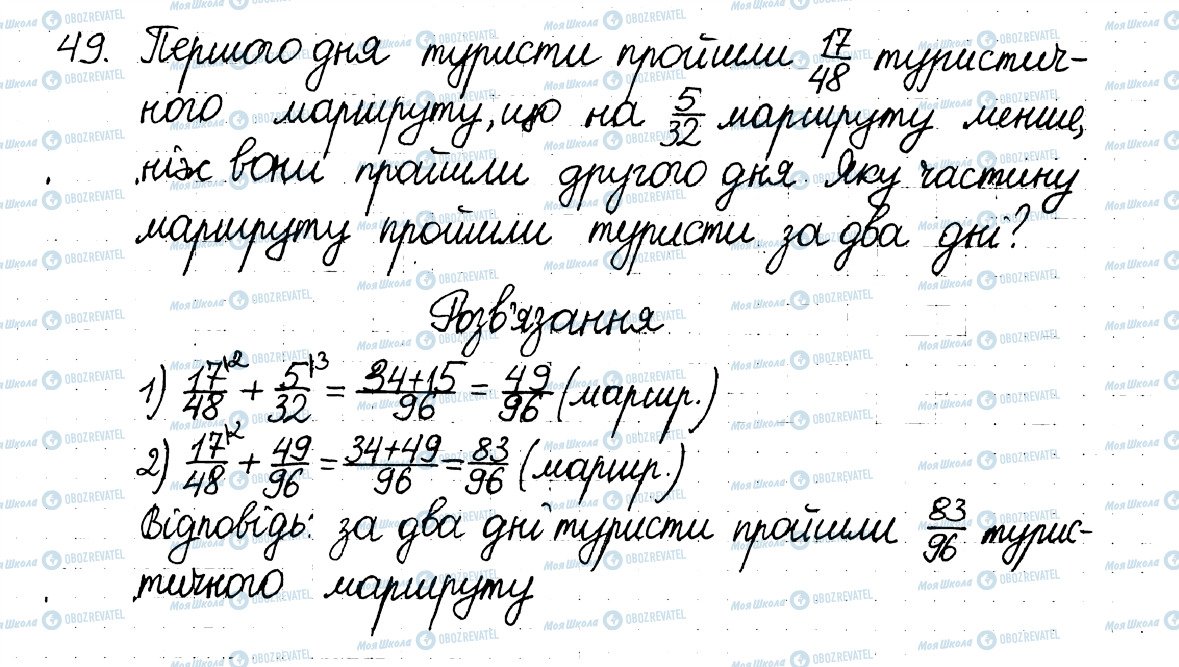 49. Першого дня туристи пройшли 17/48 туристич-
ного маршруту, що на 5/32 маршруту менше,
ніж вони пройшли другого дня. Яку частину
маршруту пройшли туристи за два дні?
Розв'язання
1) 17\2/48 + 5\3/32 = 34+15/96 = 49/96 (маршр.)
2) 17\2/48 + 49/96 = 34+49/96 = 83/96 (маршр.)
Відповідь: за два дні туристи пройшли 83/96 турис-
тичного маршруту